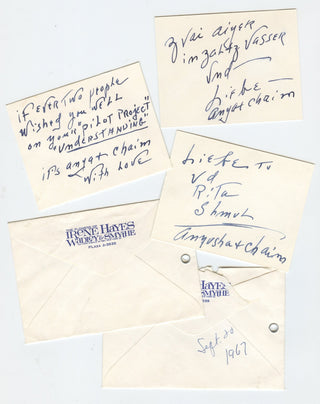 zvai aiyer
in zaltz vasser
und
Liebe—
anya+chaim
if ever two people
wished you well
on your "pilot project"
on "understanding"
it's anya+chaim
with love
Liebe tu
vd
Rita
Shmul
anyusha+chaim
IRENE HAYES
WADLEY & SMYTHE
PLAZA
HAYES
SMYTHE
Sept 20
1967